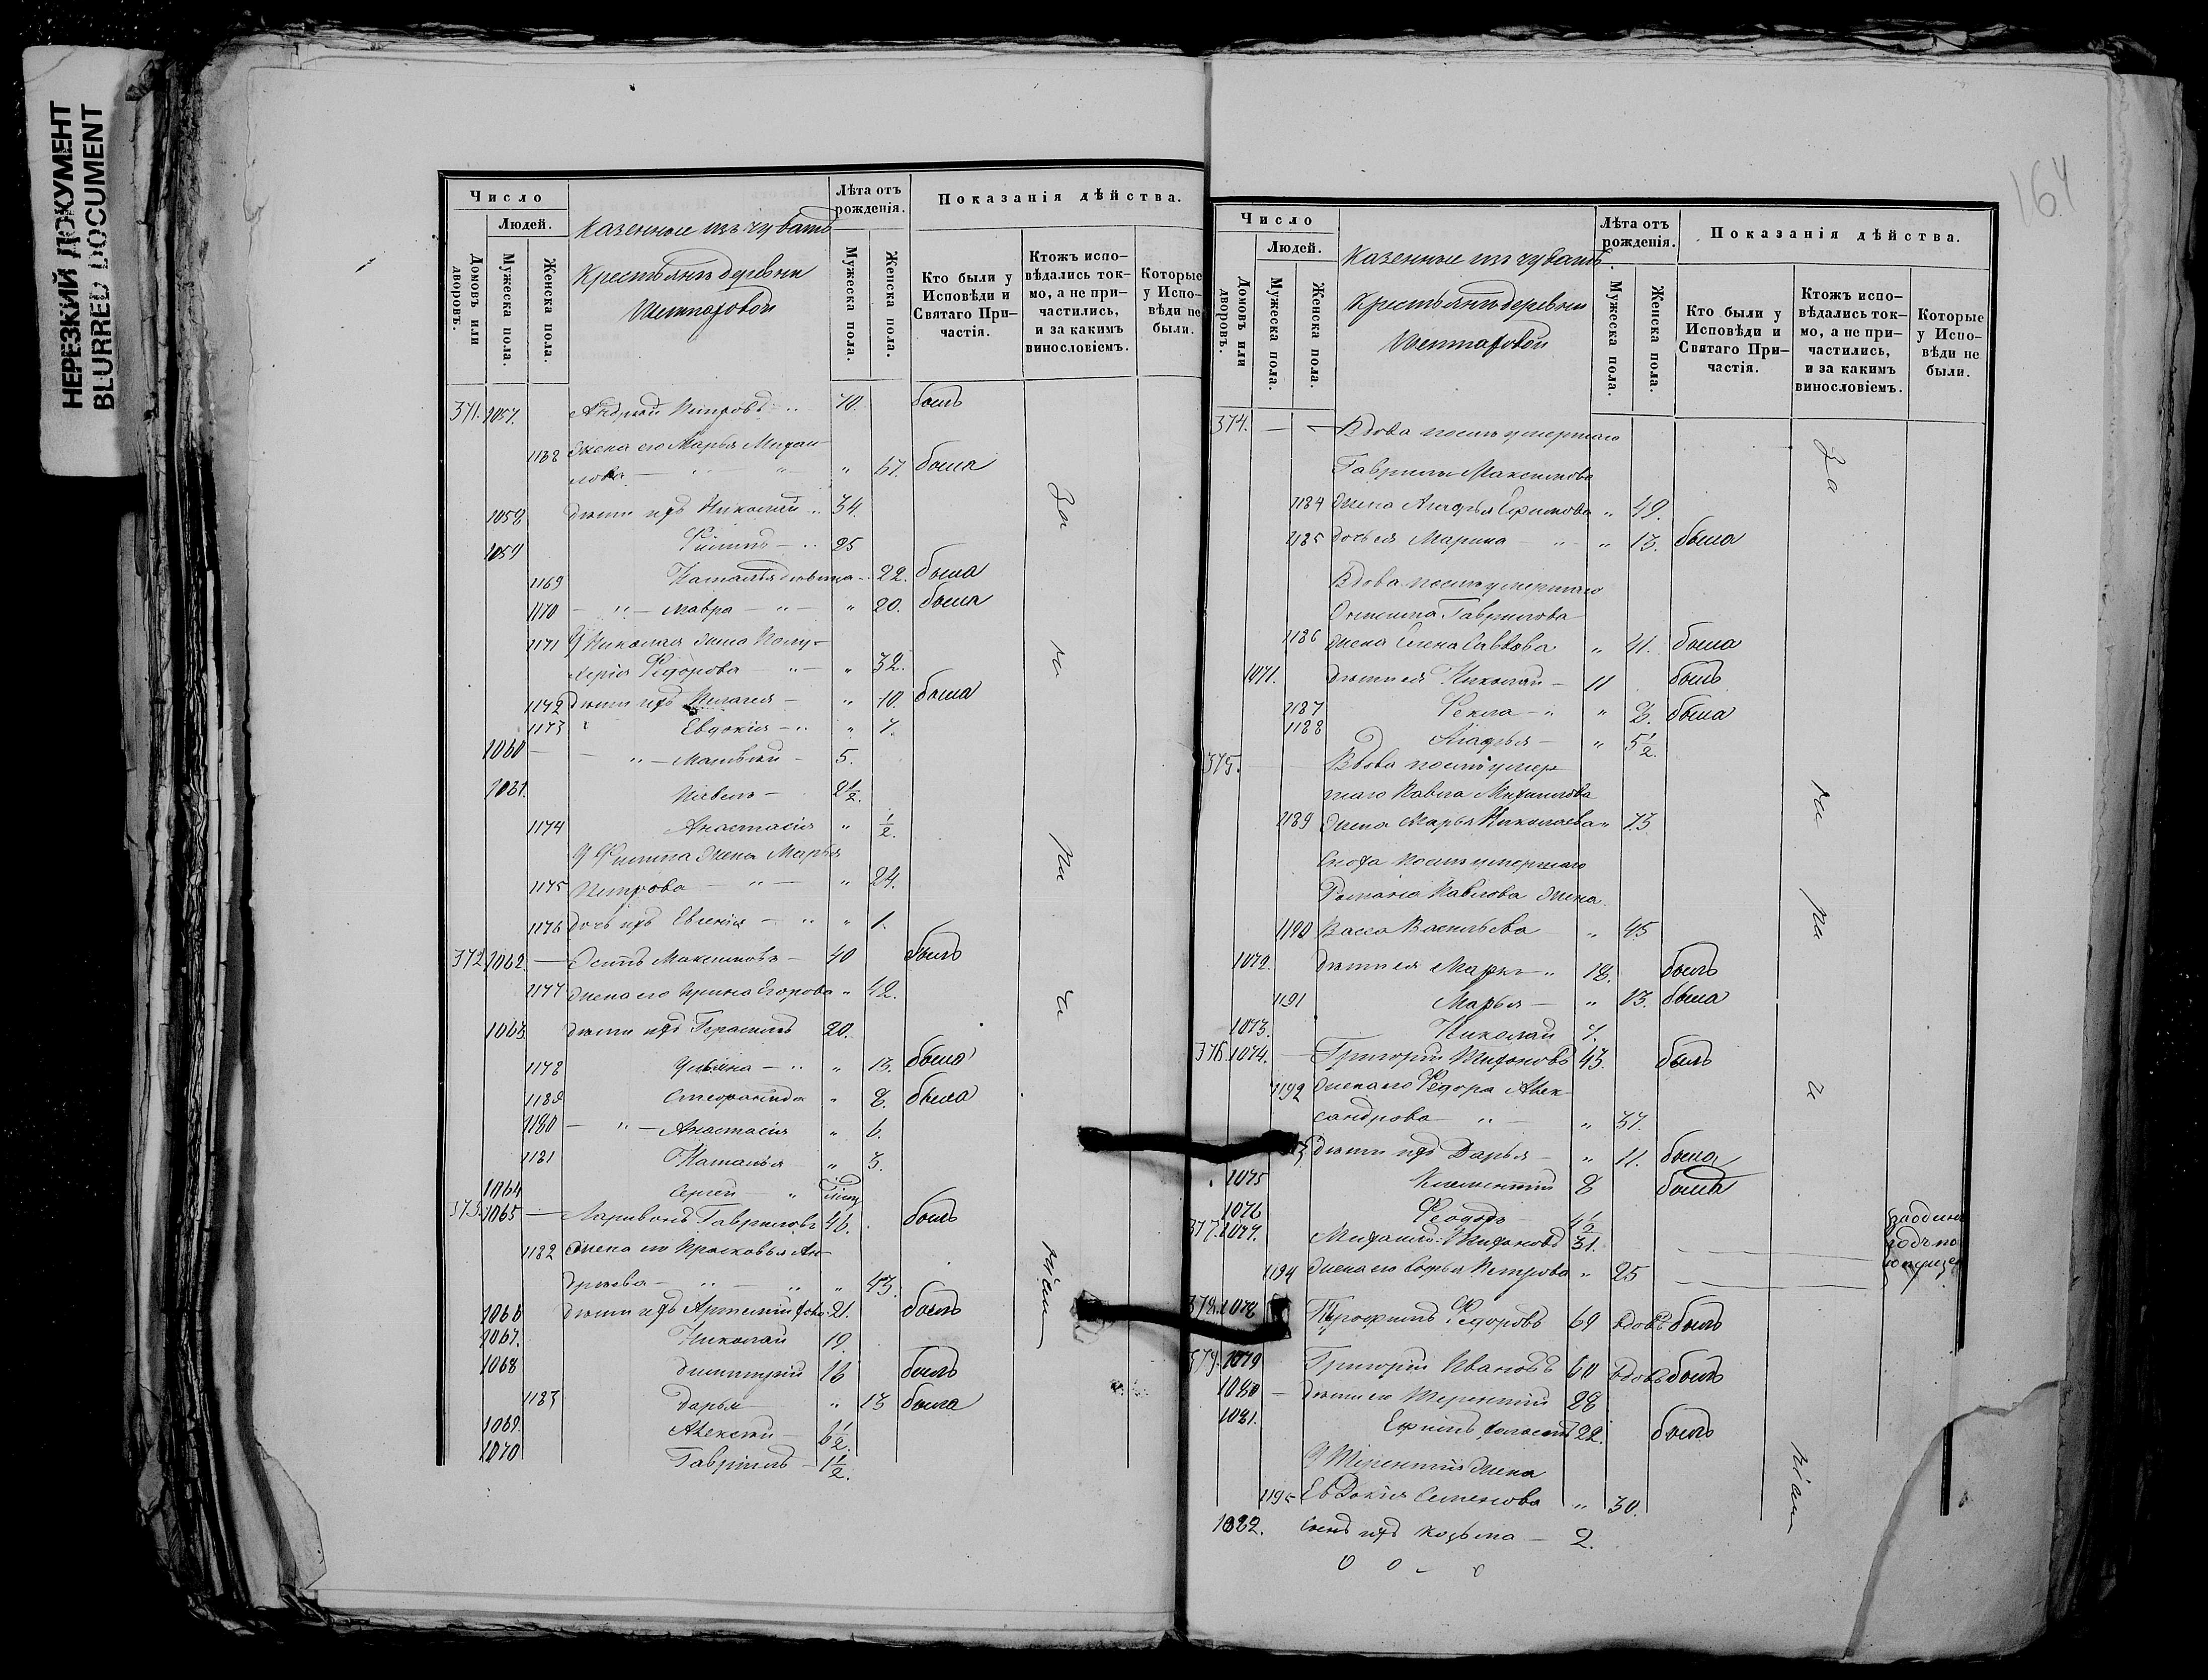 НЕРЕЗКИЙ ДОКУМЕНТ
BLURRED DOCUMENT
Число
Людей.
Домовъ или дворовъ.
Мужеска пола.
Женска пола.
Казенные изъ чувашъ
Крестьянъ деревни
Лѣта отъ рожденія.
Мужеска пола.
Женска пола.
Показанія дѣйства.
Кто были у Исповѣди и Святаго При-частія.
Ктожъ испо-вѣдались ток-мо, а не при-частились, и за какимъ винословіемъ.
Которые у Испо-вѣди не были.
371. 1057. Андрей Петровъ 70. былъ
1168 жена его Марья Михаи-
лова " 67. была
1058 дѣти ихъ Николай 34.
1059 Филипъ 25
1169 Наталья дѣвица 22. была
1170 Мавра " 20. была
1171 У Николая жена
Федорова " 32.
1172 дѣти ихъ Пелагея " 10. была
1173 Евдокія " 7.
1060 Матвѣй 5.
1061. Павелъ 2 1/2.
1174 Анастасія " 1/2.
У Филипа жена Марья
1175 Петрова " 24.
1176 дочь ихъ Евгенія " 1.
372 1062. Осипъ Максимовъ 40 былъ
1177 жена его Ирина Егорова " 42.
1063. дѣти ихъ Герасимъ 20.
1178 Ульяна " 13. была
1179 " 8. была
1180 Анастасія " 6.
1181 Наталья " 3.
1064 Сергей
373. 1065 Ларивонъ Гавриловъ 46. былъ
1182 жена его Прасковья Ан-
дреева " 43.
1066 дѣти ихъ Артемій 21. былъ
1067. Николай 19.
1068 Димитрій 16 былъ
1183 Дарья " 13 была
1069. Алексѣй 6 1/2.
1070 Гавріилъ 1 1/2.
За
ні
ями
164
Число
Людей.
Домовъ или дворовъ.
Мужеска пола.
Женска пола.
Казенные изъ чувашъ
Крестьянъ деревни
Лѣта отъ рожденія.
Мужеска пола.
Женска пола.
Показанія дѣйства.
Кто были у Исповѣди и Святаго При-частія.
Ктожъ испо-вѣдались ток-мо, а не при-частились, и за какимъ винословіемъ.
Которые у Испо-вѣди не были.
374. Вдова послѣ умершаго
Гаврила Максимова
1184 жена Агафья Ефимова " 49.
1185 дочь ея Марина " 13. была
Вдова послѣ умершаго
Гаврилова
1186 жена Елена Саввова " 41. была
1071. дѣти ея Николай 11 былъ
1187 Фекла " 8. была
1188 Агафья " 5 1/2.
375. Вдова послѣ умер
шаго Павла Михайлова
1189 жена Марья Николаева " 73.
Сноха послѣ умершаго
Романа Павлова жена
1190 Васса Васильева " 45
1072. дѣти ея Маркъ 18. былъ
1191 Марья " 13. была
1073. Николай 7.
376. 1074. Григорій 43. былъ
1192 жена его Федора Алек-
сандрова " 37.
3 дѣти ихъ Дарья " 11. была
1075 Климентій 8
1076 Феодоръ 4 1/2
377. 1077. Михаилъ 31.
1194 жена его Софья Петрова " 25
378. 1078 Трофимъ Федоровъ 69 вдовъ былъ
379. 1079 Григорій Ивановъ 60 вдовъ былъ
1080 дѣти его Терентій 28
1081. Ефимъ холостъ 22. былъ
У Терентія жена
1195 Евдокія Семенова " 30.
1082. сынъ ихъ Козьма 2.
За